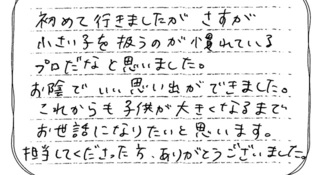 初めて行きましたが さすが
小さい子を扱うのが慣れている
プロだなと思いました。
お陰でいい思い出ができました。
これからも子供が大きくなるまで
お世話になりたいと思います。
担当してくださった方、ありがとうございました。